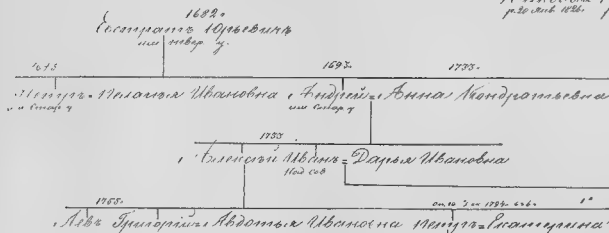 р. 20 янв 1826.
1682.
Евстратъ Юрьевичъ
1693. 1733.
Петръ = Пелагья Ивановна Андрей = Анна Кондратьевна
1733
Алексѣй Иванъ = Дарья Ивановна
Над сов
1765.
Левъ Григорій = Авдотья Ивановна Петръ = Екатерина